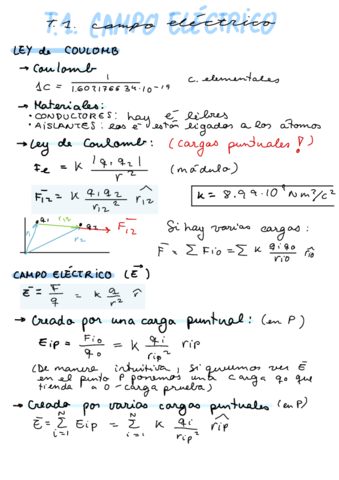 T.1. CAMPO ELÉCTRICO
T.1. campo eléctrico
LEY de COULOMB
→ Coulomb
1C = 1 / 1.602176634·10⁻¹⁹ c. elementales
→ Materiales:
• CONDUCTORES: hay e⁻ libres
• AISLANTES: los e⁻ están ligados a los átomos
→ Ley de Coulomb: (cargas puntuales!)
Fe = K |q1 q2| / r² (módulo)
F12 = K q1 q2 / r12² r̂12
k = 8.99·10⁹ Nm²/c²
q1 r12 q2 F12
r1 r2
Si hay varias cargas:
F = Σ Fi0 = Σ K qi q0 / ri0 r̂i0
CAMPO ELÉCTRICO (E)
E = F/q = K q/r² r̂
→ Creado por una carga puntual: (en P)
Eip = Fi0/q0 = K qi/rip² rip
(De manera intuitiva, si queremos ver E
en el punto P ponemos una carga q0 que
tienda a 0 - carga prueba)
→ Creado por varias cargas puntuales (en P)
E = Σ(i=1, N) Eip = Σ(i=1, N) K qi/rip² r̂ip